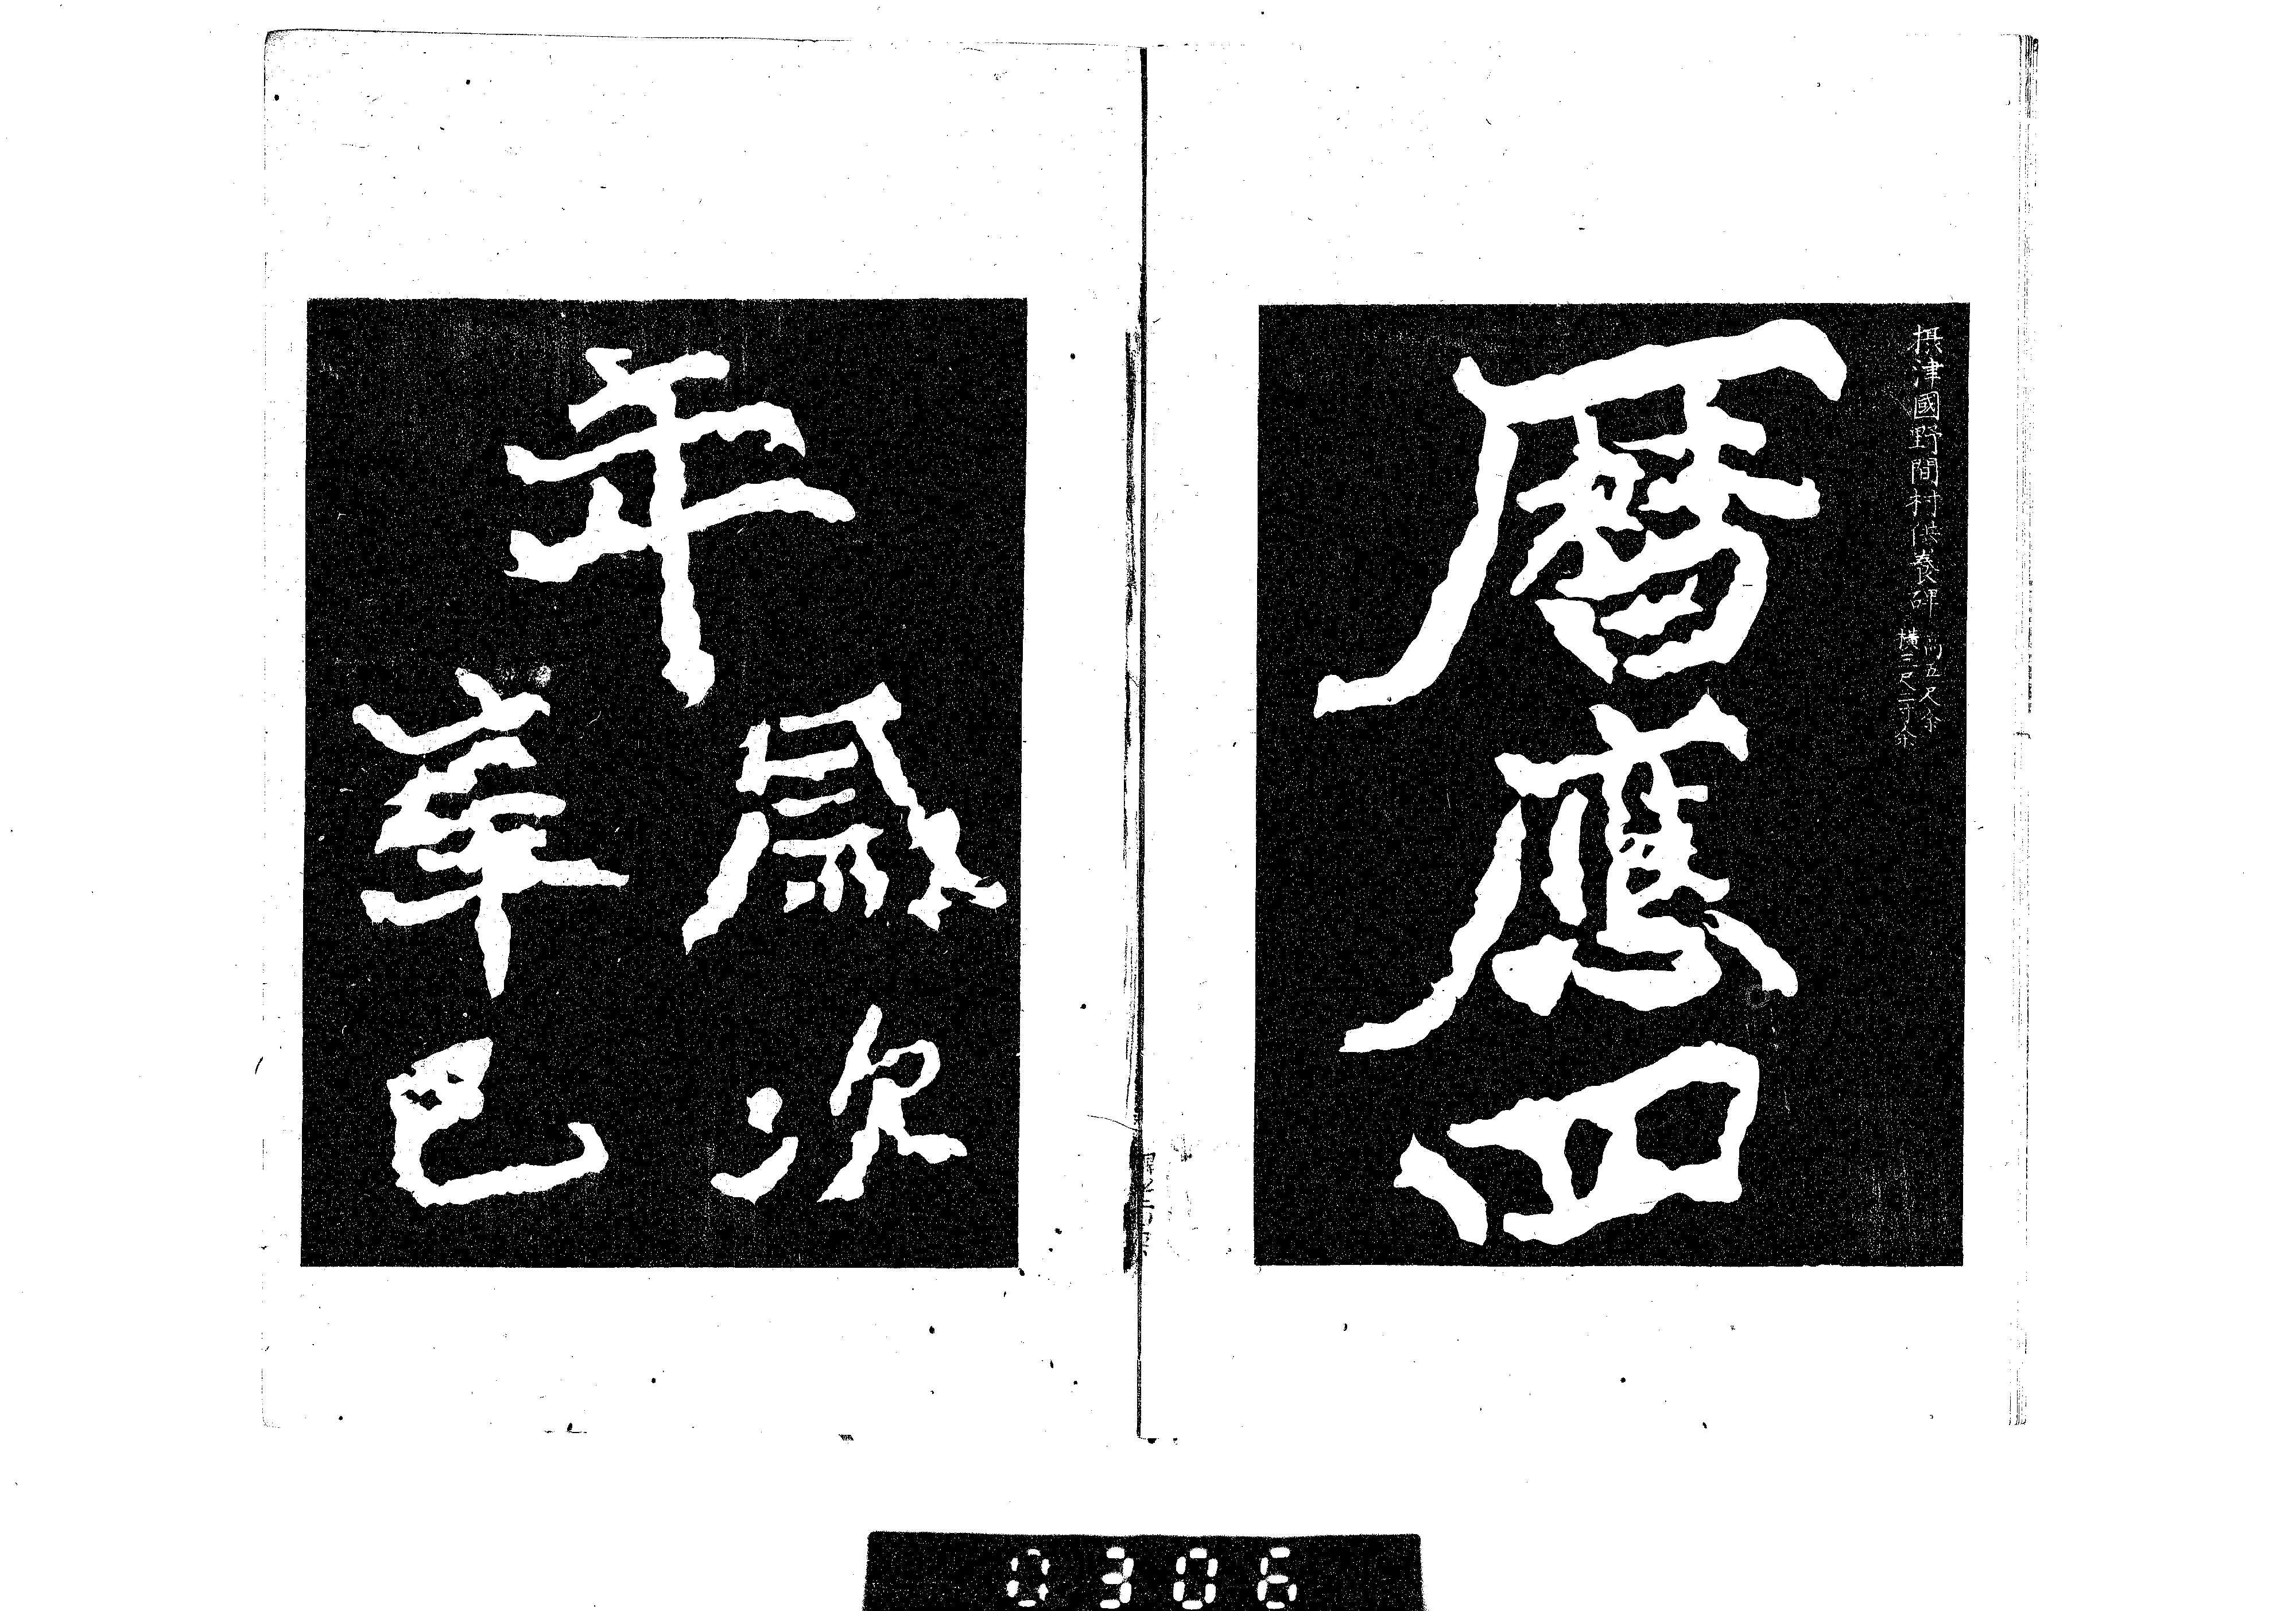 摂津國野間村供養碑
高五尺余
横三尺二寸余
暦應四
年
歳次
辛巳
0306